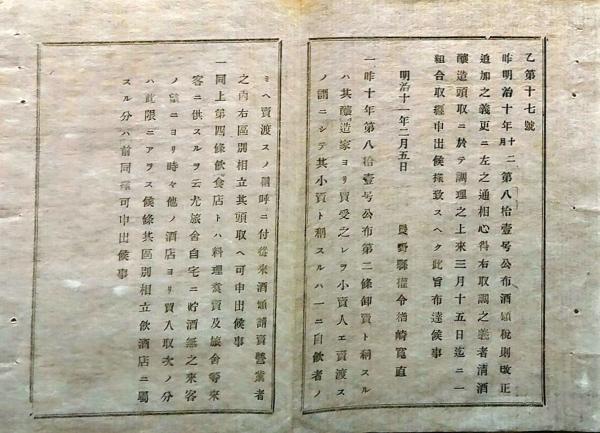 乙第十七號
昨明治十年十二月第八拾壹号公布酒類税則改正
追加之義更ニ左之通相心得右取調之義者清酒
醸造頭取ニ於テ調理之上来三月十五日迄ニ一
組合取纒申出候様致スヘク此旨布達候事
明治十一年二月五日
長野縣權令楢崎寛直
一昨十年第八拾壹号公布第二條卸賣ト稱スル
ハ其醸造家ヨリ買受之レヲ小賣人エ賣渡ス
ノ謂ニシテ其小賣ト稱スルハ一ニ自飲者ノ
ミヘ賣渡スノ稱呼ニ付從来酒類請賣營業者
之内右區別相立其頭取ヘ可申出候事
一同上第四條飲食店トハ料理煑賣及旅舎等来
客ニ供スルヲ云尤旅舎自宅ニ貯酒無之来客
ノ望ニヨリ時々他ノ酒店ヨリ買入取次ノ分
ハ此限ニアラス候條其區別相立飲酒店ニ屬
スル分ハ前同樣可申出候事